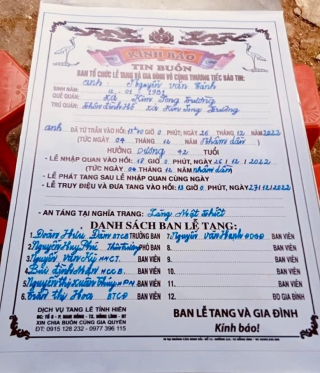 KÍNH BÁO
TIN BUỒN
BAN TỔ CHỨC LỄ TANG VÀ GIA ĐÌNH VÔ CÙNG THƯƠNG TIẾC BÁO TIN:
anh: Nguyễn Văn
SINH NGÀY: 12 - 03 - 1981
QUÊ QUÁN: Xã Kim Song Trường
TRÚ QUÁN: Xã Kim Song Trường
anh ĐÃ TỪ TRẦN VÀO HỒI: GIỜ 0 PHÚT, NGÀY 26 THÁNG 12 /2022
(TỨC NGÀY 04 THÁNG 12 NĂM Nhâm dần)
HƯỞNG Dương 42 TUỔI
- LỄ NHẬP QUAN VÀO HỒI: 17 GIỜ 0 PHÚT, NGÀY 26/12/2022
(TỨC NGÀY 04 THÁNG 12 NĂM Nhâm dần)
- LỄ PHÁT TANG SAU LỄ NHẬP QUAN CÙNG NGÀY
- LỄ TRUY ĐIỆU VÀ ĐƯA TANG VÀO HỒI: 13 GIỜ 0 PHÚT, NGÀY 27/12/2022
- AN TÁNG TẠI NGHĨA TRANG: Làng Nhật
DANH SÁCH BAN LỄ TANG:
1. Đoàn Hữu Đàm BTCB TRƯỞNG BAN 7. Nguyễn Văn BAN VIÊN
2. Nguyễn Huy Phú Thôn trưởng PHÓ BAN 8. BAN VIÊN
3. Nguyễn Văn Kỷ BAN VIÊN 9. BAN VIÊN
4. Bùi BAN VIÊN 10. BAN VIÊN
5. Nguyễn Thị Xuân Thùy BAN VIÊN 11. BAN VIÊN
6. Trần Thị Hoa BTCB BAN VIÊN 12. ĐD GIA ĐÌNH
DỊCH VỤ TANG LỄ TÌNH HIỀN
XIN CHIA BUỒN CÙNG GIA QUYẾN
ĐT: 0915 128 232 - 0977 396 115
BAN LỄ TANG VÀ GIA ĐÌNH
Kính báo!